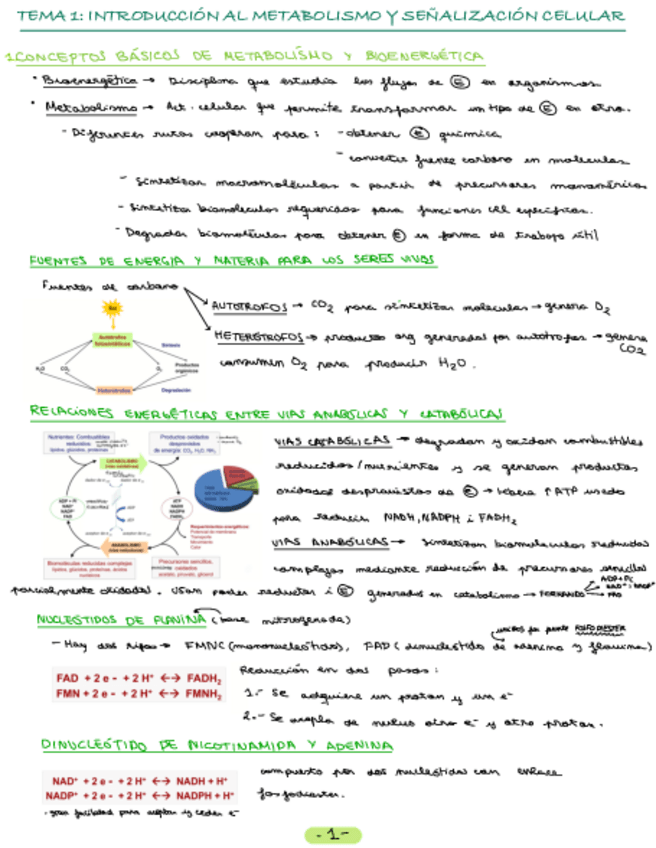 TEMA 1: INTRODUCCIÓN AL METABOLISMO Y SEÑALIZACIÓN CELULAR
1. CONCEPTOS BÁSICOS DE METABOLISMO Y BIOENERGÉTICA
· Bioenergética → Disciplina que estudia los flujos de E en organismos
· Metabolismo → Act. celular que permite transformar un tipo de E en otro.
- Diferentes rutas cooperan para: - obtener E química
- convertir fuente carbono en moléculas
- Sintetizar macromoléculas a partir de precursores monoméricos
- Sintetizar biomoléculas requeridas para funciones cel específicas.
- Degradar biomoléculas para obtener E en forma de trabajo útil
FUENTES DE ENERGIA Y MATERIA PARA LOS SERES VIVOS
Fuentes de carbono
AUTÓTROFOS → CO2 para sintetizar moléculas → genera O2
HETERÓTROFOS → productos org generados por autótrofos → genera CO2
consumen O2 para producir H2O.
Sol
Autótrofos
fotosintéticos
Síntesis
H2O CO2 O2 Productos
orgánicos
Heterótrofos Degradación
RELACIONES ENERGÉTICAS ENTRE VIAS ANABÓLICAS Y CATABÓLICAS
Nutrientes Combustibles
reducidos
lípidos, glúcidos, proteínas
Productos oxidados
desprovistos
de energía: CO2, H2O, NH3
CATABOLISMO
(vías oxidativas)
ADP + Pi
NAD+
NADP+
FAD
ATP
NADH
NADPH
FADH2
ANABOLISMO
(vías reductoras)
Requerimientos energéticos
Potencial de membrana
Transporte
Movimiento
Calor
Biomoléculas reducidas complejas
lípidos, glúcidos, proteínas, ácidos
nucleicos
Precursores sencillos,
oxidados
acetato, piruvato, glicerol
VIAS CATABÓLICAS → degradan y oxidan combustibles
reducidos/nutrientes y se generan productos
oxidados desprovistos de E → libera ↑ATP usado
para reducir NADH, NADPH i FADH2
VIAS ANABÓLICAS → Sintetizan biomoléculas reducidas
complejas mediante reducción de precursores sencillos
parcialmente oxidados. Usan poder reductor i E generados en catabolismo → FORMANDO
ADP+Pi
NAD+ i NADP+
FAD
NUCLEÓTIDOS DE FLAVINA (base nitrogenada)
unidos por puente FOSFODIÉSTER
- Hay dos tipos → FMN (mononucleótido), FAD (dinucleótido de adenina y flavina)
FAD + 2 e- + 2 H+ ↔ FADH2
FMN + 2 e- + 2 H+ ↔ FMNH2
Reducción en dos pasos:
1.- Se adquiere un protón y un e-
2.- Se acopla de nuevo otro e- y otro protón.
DINUCLEÓTIDO DE NICOTINAMIDA Y ADENINA
NAD+ + 2 e- + 2 H+ ↔ NADH + H+
NADP+ + 2 e- + 2 H+ ↔ NADPH + H+
compuesto por dos nucleótidos con enlace
fosfodiéster.
- gran facilidad para aceptar y ceder e-
- 1 -